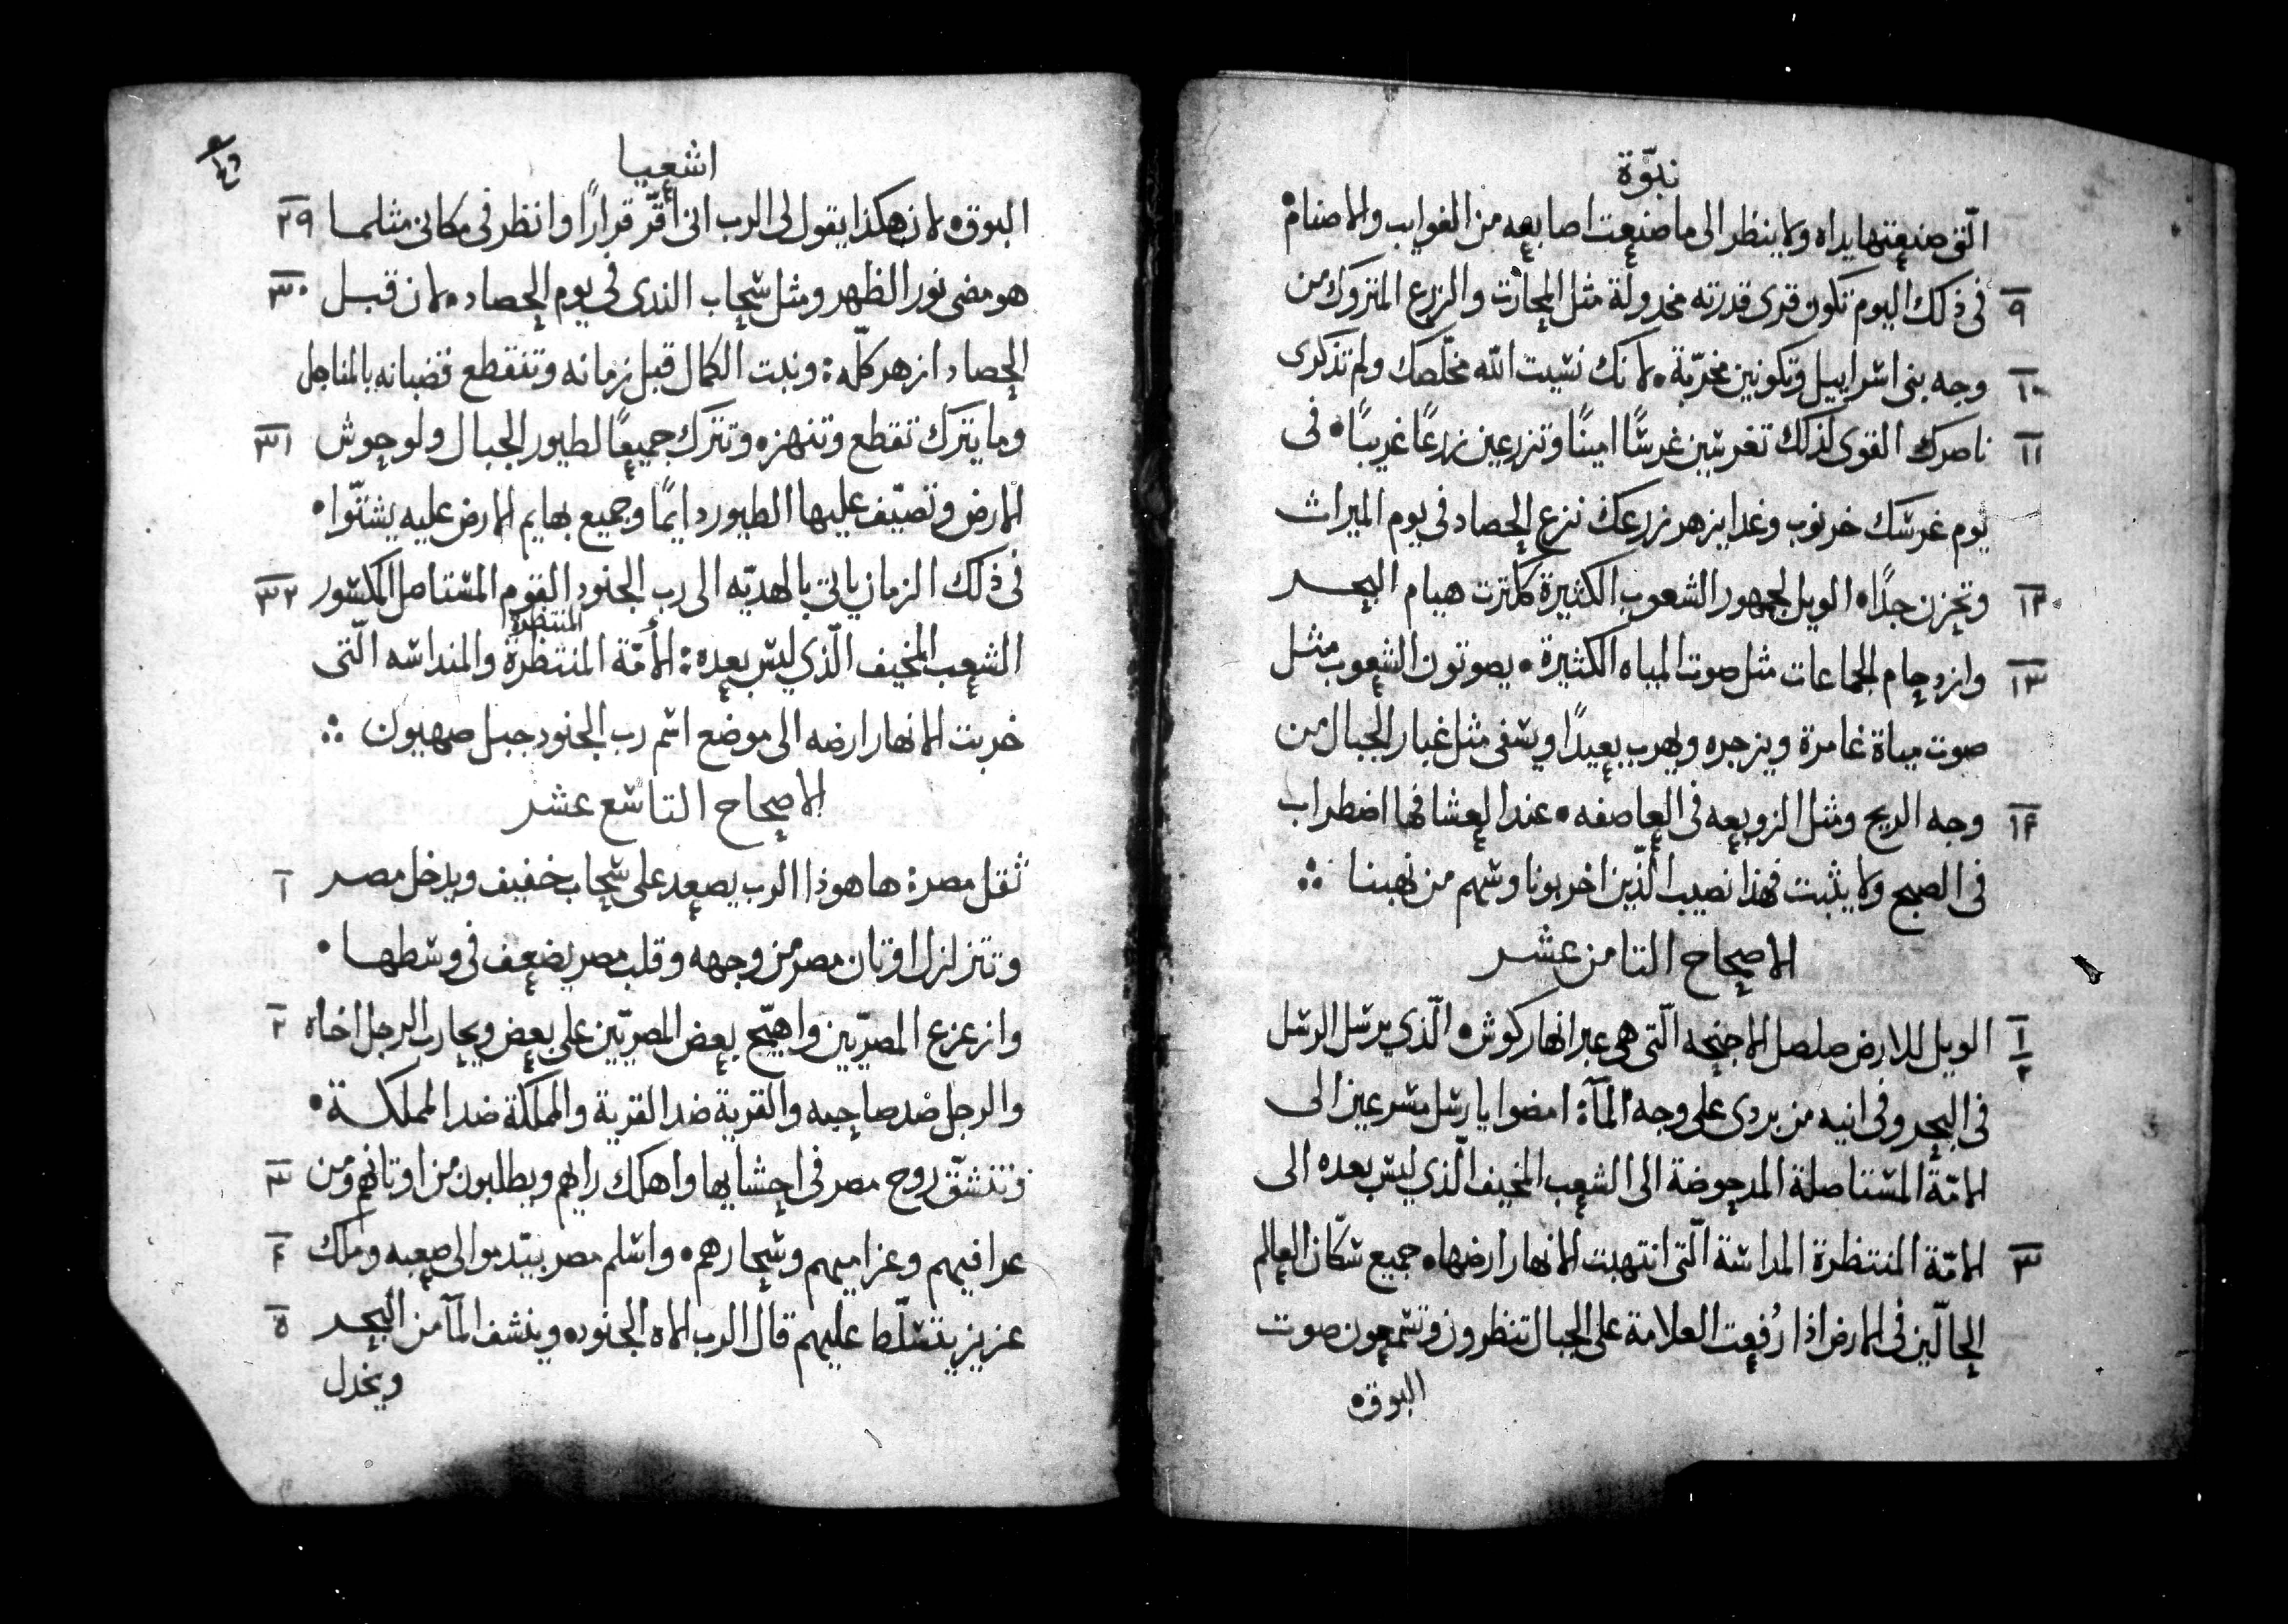 نبوّة
الّتى صنعتها يداه ولا ينظر الى ما صنعت اصابعه من الغوايب والاصنام•
٩ فى ذلك اليوم تكون قرى قدرته مخدولة مثل المحارت والزرع المتروك من
١٠ وجه بنى اسراييل وتكونين مخرّبة• لانك نسيت الله مخلّصك ولم تذكرى
١١ ناصرك القوى لذلك تغرسين غرسًا امينًا وتزرعين زرعًا غريبًا• فى
يوم غرسك خرنوب وغدا يزهر زرعك نزع الحصاد فى يوم الميراث
١٢ وتحزن جدًا• الويل لجمهور الشعوب الكثيرة كلترت هيام البحر
١٣ وازدحام الجماعات مثل صوت المياه الكثيرة• يصوتون الشعوب مثل
صوت مياة غامرة ويزجره ويهرب بعيدًا ويسفى مثل غبار الجبال من
١٤ وجه الريح ومثل الزوبعه فى العاصفه• عند العشا فها اضطراب
فى الصبح ولا يثبت فهذا نصيب الّذين اخربونا وسهم من نهبنا ⁘
الاصحاح التامن عشر
١ ٢ الويل للارض صلصل الاجنحه الّتى هى عبر انهار كوش• الّذي يرسل الرسل
فى البحر وفى انيه من بردى على وجه المآء امضوا يا رسل مسرعين الى
الامّة المستاصلة المدحوضة الى الشعب المخيف الّذي ليس بعده الى
٣ الامّة المنتظرة المداسة الّتى انتهبت الانهار ارضها• جميع سكّان العالم
الحالّين فى الارض اذا رُفعت العلامة على الجبال تنظرون وتسمعون صوت
البوق•
اشعيا
البوق• لان هكذا يقول لى الرب انى أقرّ قرارًا وانظر فى مكانى مثلما ٢٩
هو مضى نور الظهر ومثل سحاب الندى فى يوم الحصاد• لان قبل ٣٠
الحصاد ازهر كلّه: ونبت الكمال قبل زمانه وتنقطع قضبانه بالمناجل
وما يترك تقطع وتنهزه وتترك جميعًا لطيور الجبال ولوحوش ٣١
الارض وتصيّف عليها الطيور دايمًا وجميع بهايم الارض عليه يشتّوا•
فى ذلك الزمان ياتى بالهديّه الى رب الجنود القوم المستاصل المكسور ٣٢
المنتظرة
الشعب المخيف الّذي ليس بعده: الأمّة المنتظرة والمنداسه الّتى
خربت الانهار ارضه الى موضع اسم رب الجنود جبل صهيون ⁘
الاصحاح التاسع عشر
ثقل مصر: ها هوذا الرب يصعد على سحاب خفيف ويدخل مصر ١
وتتزلزل اوتان مصر من وجهه وقلب مصر يضعف فى وسطها•
وازعزع المصريّين واهيّج بعض المصريّين على بعض ويحارب الرجل اخاه ٢
والرجل ضد صاحبه والقرية ضد القرية والمملكة ضد المملكة•
وتنشقّ روح مصر فى احشايها واهلك رايهم ويطلبون من اوتانهم ومن ٣
عرافيهم وعزاميهم وسحارهم• واسلم مصر بيد موالى صعبه وملك ٤
عزيز يتسلّط عليهم قال الرب الاه الجنود• وينشف المآ من البحر ٥
ويخدل